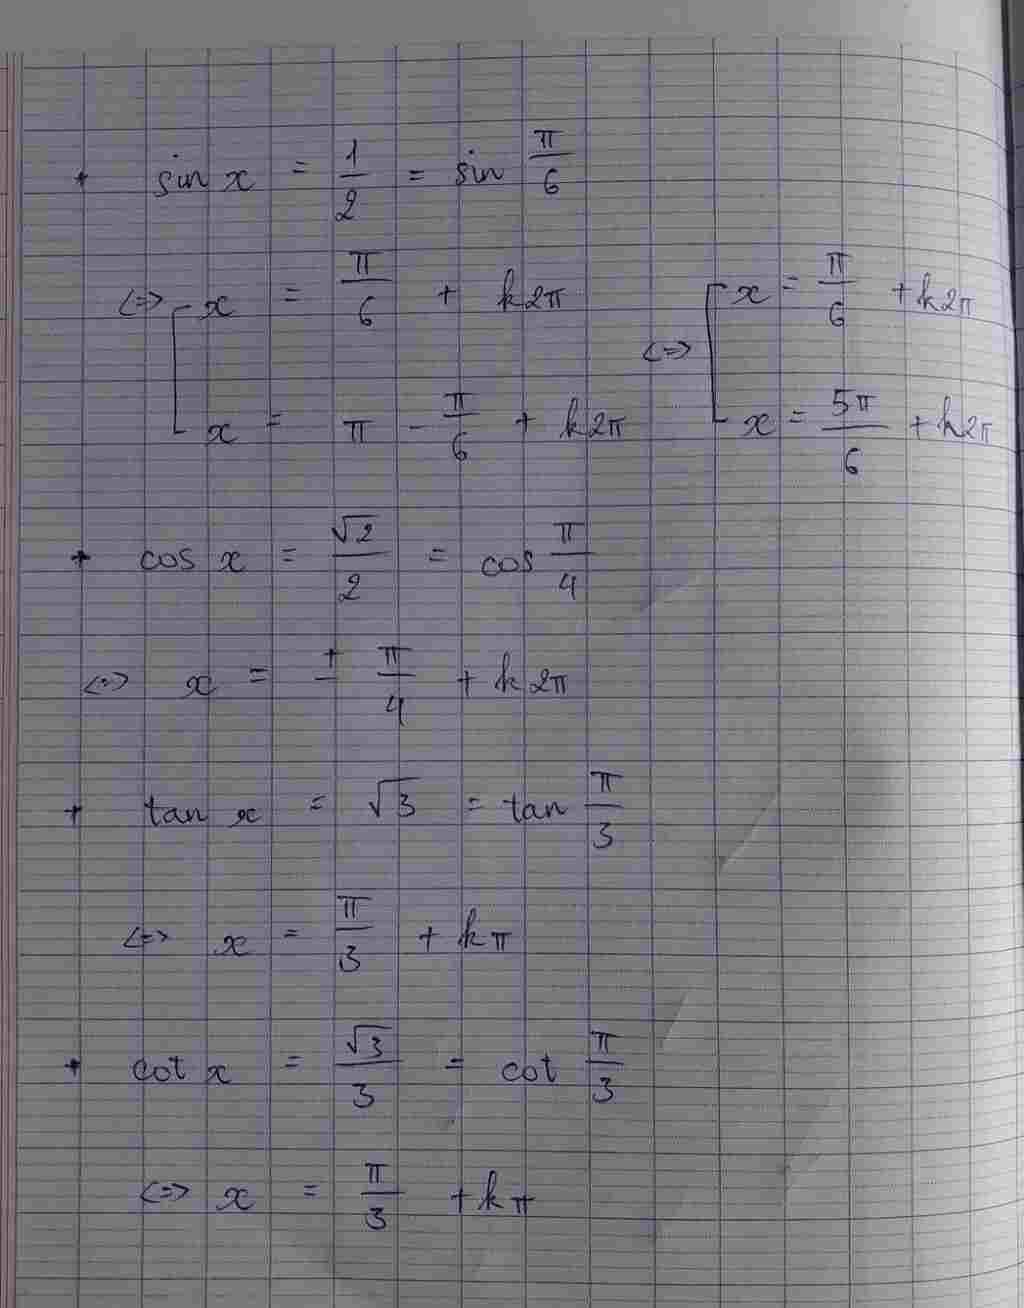 + sin x = 1/2 = sin π/6
<=> [ x = π/6 + k2π <=> [ x = π/6 + k2π
x = π - π/6 + k2π x = 5π/6 + k2π
+ cos x = √2/2 = cos π/4
<=> x = ± π/4 + k2π
+ tan x = √3 = tan π/3
<=> x = π/3 + kπ
+ cot x = √3/3 = cot π/3
<=> x = π/3 + kπ